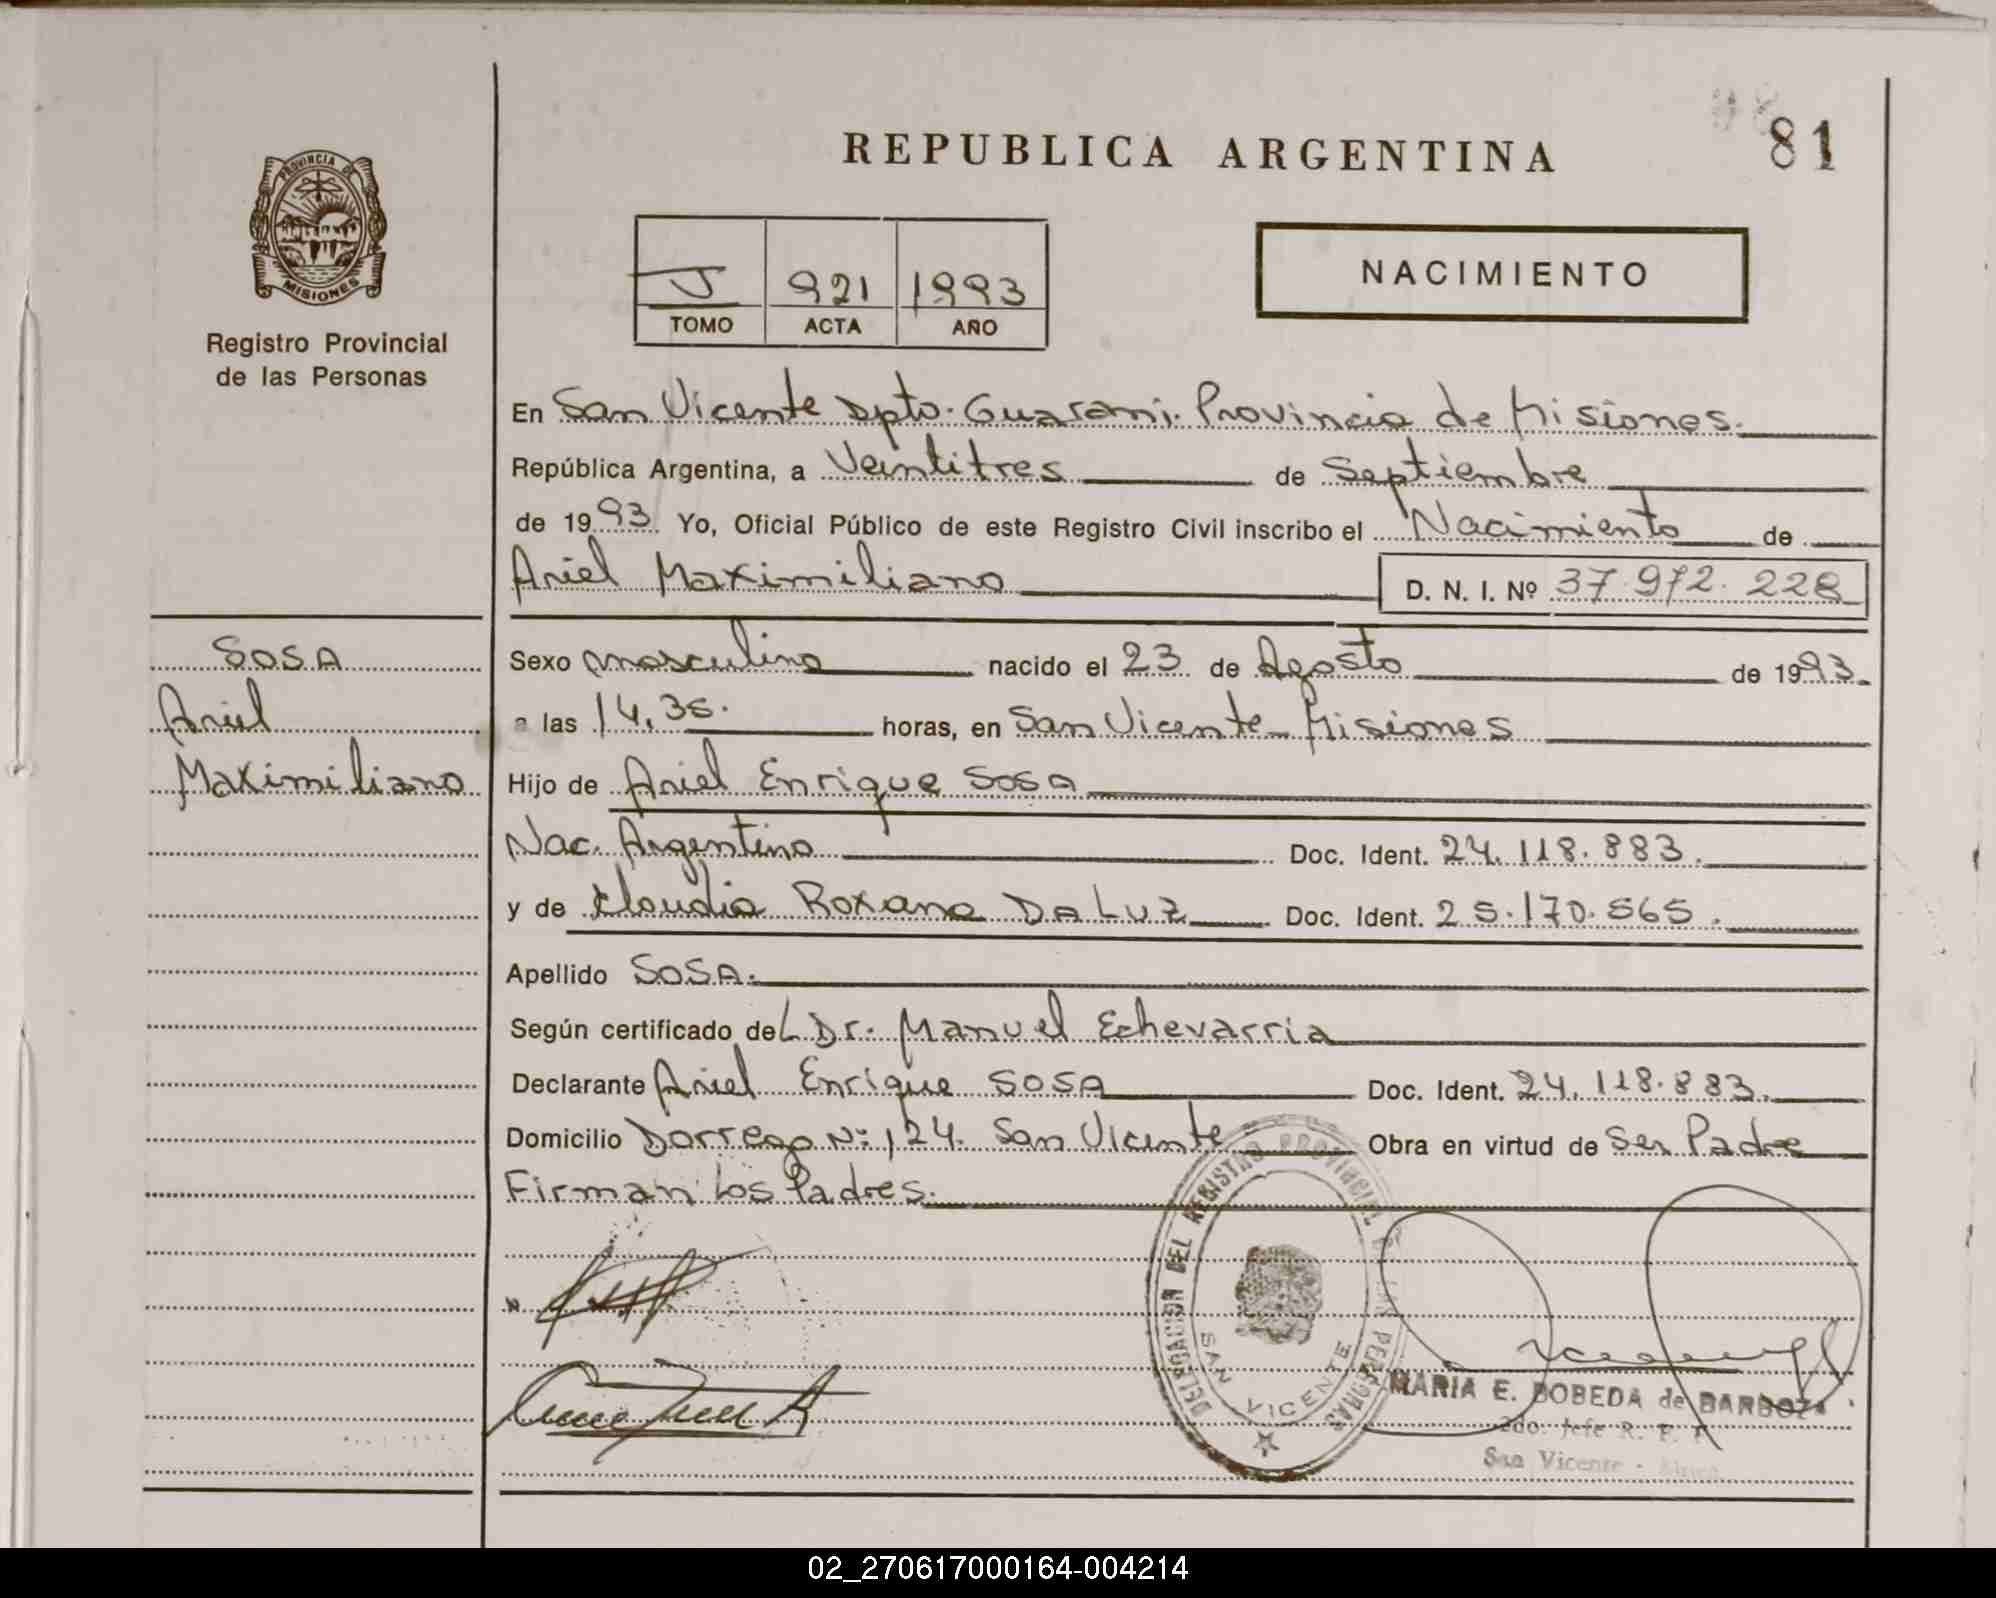 REPUBLICA ARGENTINA
81
PROVINCIA DE
MISIONES
Registro Provincial
de las Personas
J 921 1993
TOMO ACTA AÑO
NACIMIENTO
En San Vicente Dpto. Guarani. Provincia de Misiones.
República Argentina, a Veintitres de Septiembre
de 1993. Yo, Oficial Público de este Registro Civil inscribo el Nacimiento de
Ariel Maximiliano D. N. I. Nº 37.972.228
SOSA
Ariel
Maximiliano
Sexo masculino nacido el 23 de Agosto de 1993.
a las 14,35. horas, en San Vicente Misiones
Hijo de Ariel Enrique SOSA
Nac. Argentino Doc. Ident. 24.118.883.
y de Claudia Roxana DA LUZ Doc. Ident. 25.170.565.
Apellido SOSA.
Según certificado del Dr. Manuel Echevarria
Declarante Ariel Enrique SOSA Doc. Ident. 24.118.883.
Domicilio Dorrego Nº 124. San Vicente Obra en virtud de Ser Padre
Firman los Padres.
DELEGACION DEL REGISTRO PROVINCIAL DE LAS PERSONAS
SAN VICENTE
MARIA E. BOBEDA de BARBOZA
2do. Jefe R. P. P.
San Vicente -
02_270617000164-004214